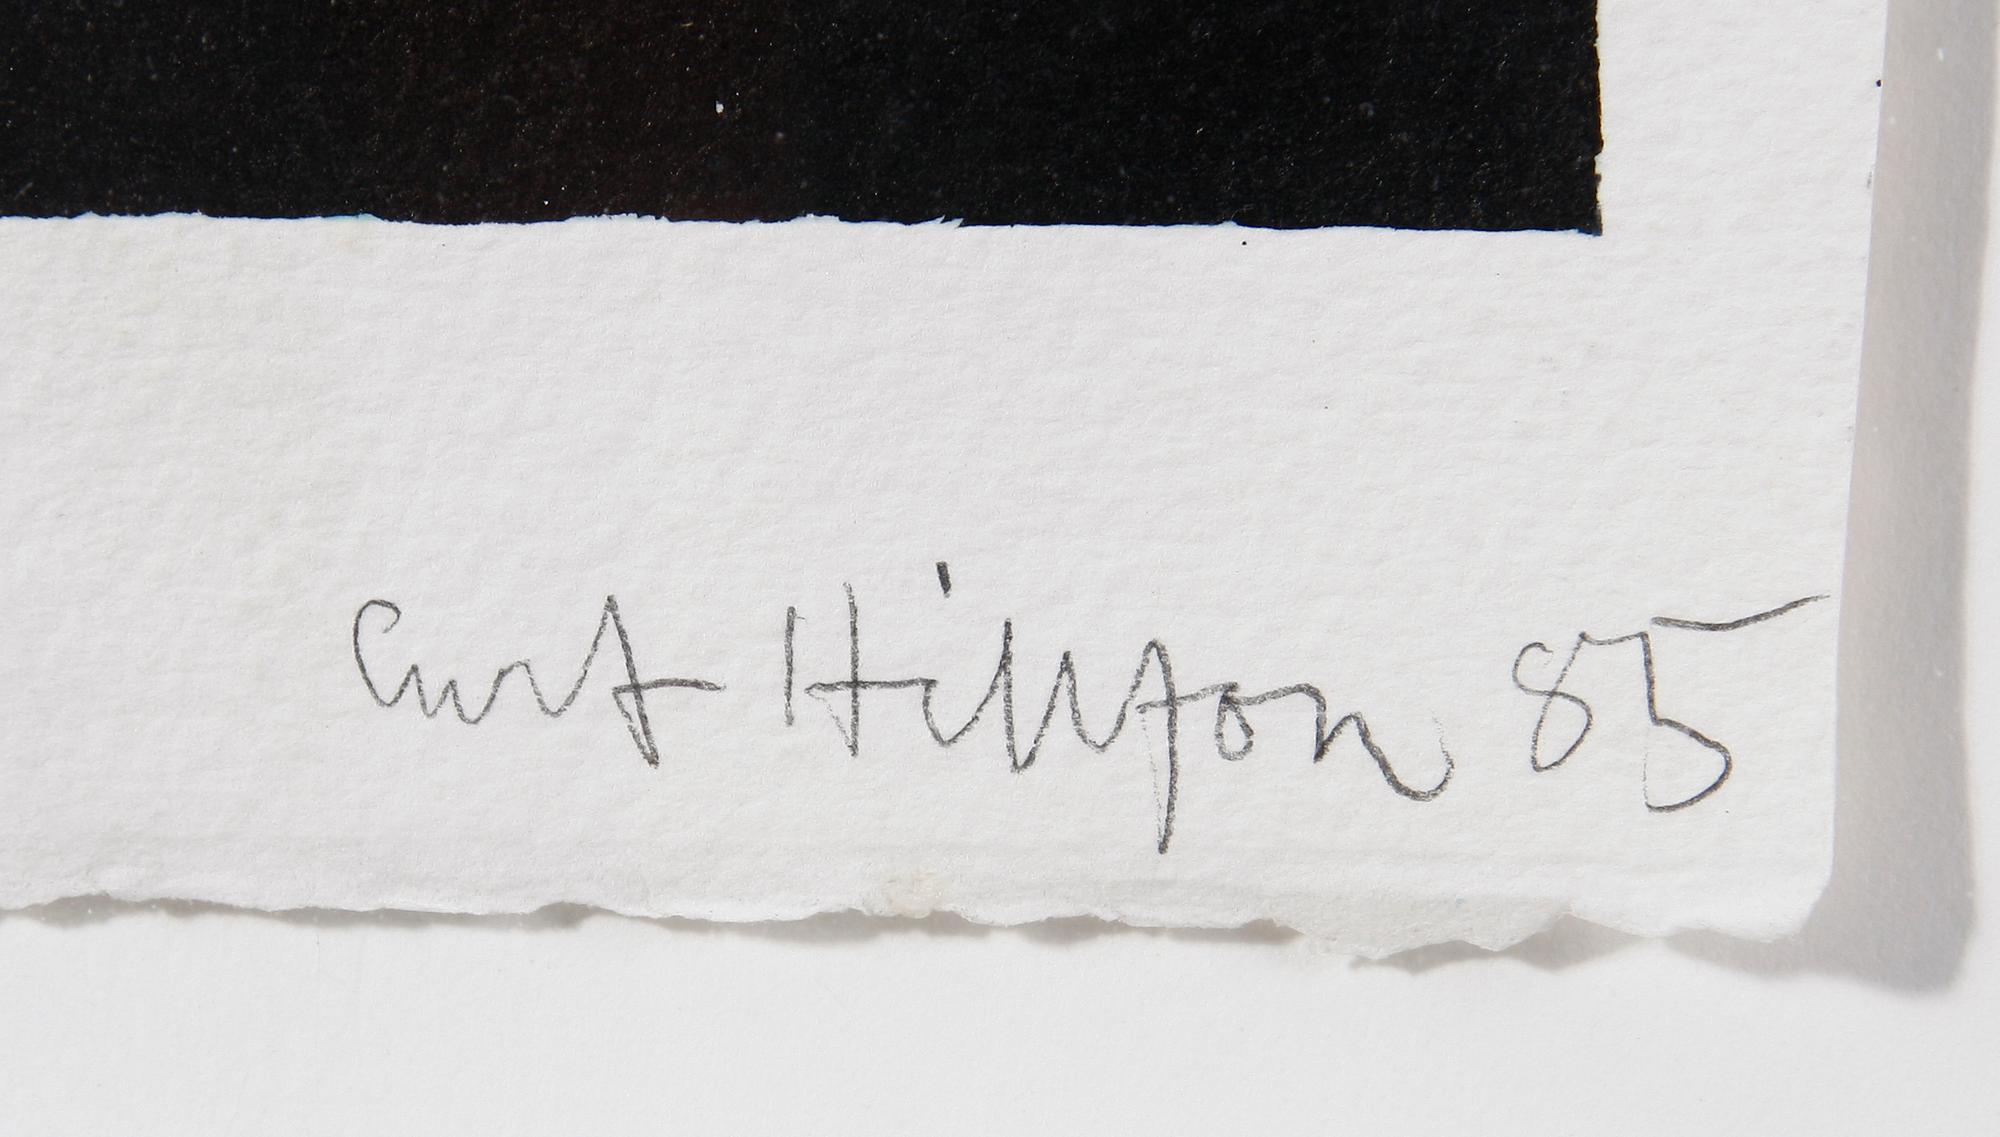 Curt Hillfon 85